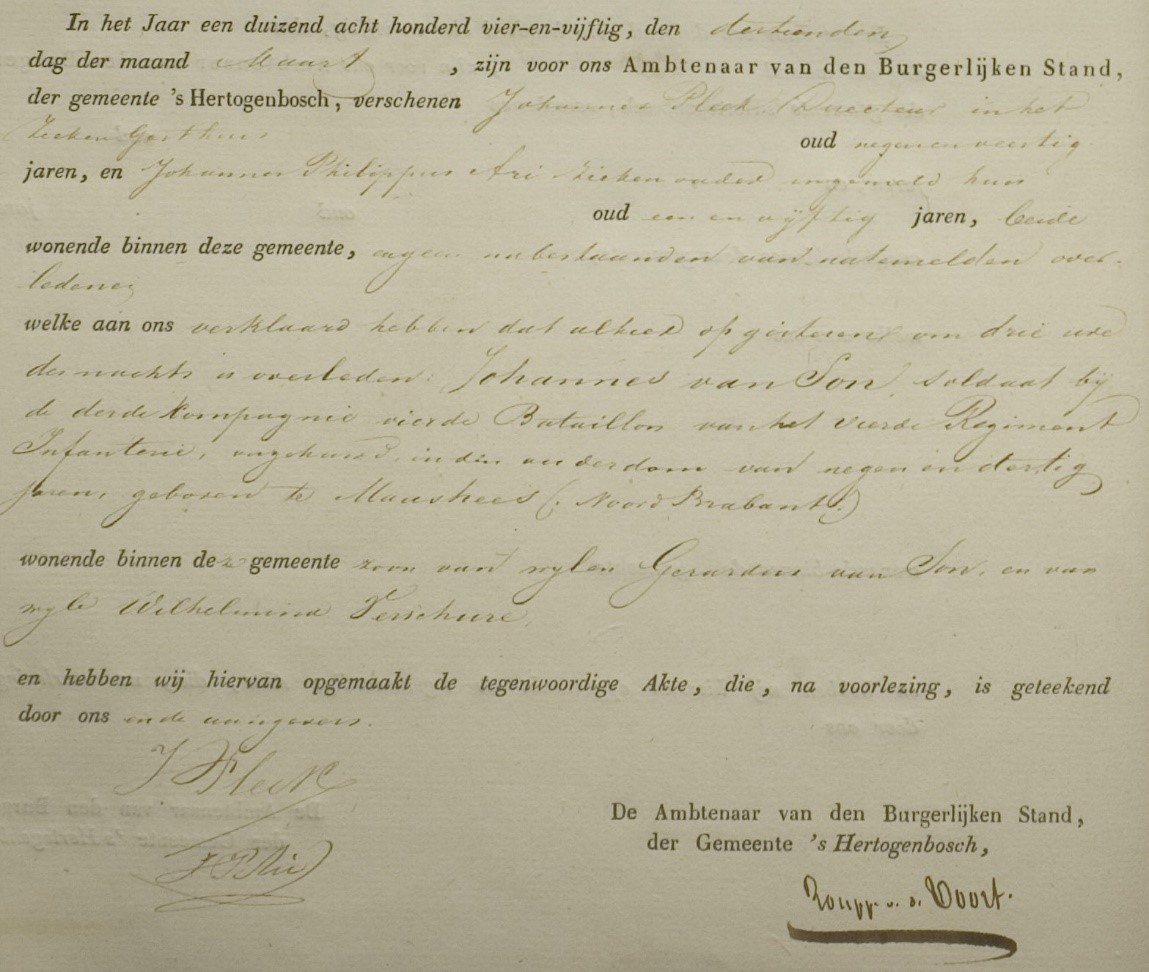 In het Jaar een duizend acht honderd vier-en-vijftig, den dertienden
dag der maand Maart , zijn voor ons Ambtenaar van den Burgerlijken Stand,
der gemeente 's Hertogenbosch, verschenen Johannes Pleck Directeur in het
Zieken Gasthuis oud negen en veertig
jaren, en Johannes Philippus Zieken ingemeld huis
oud een en vijftig jaren, beide
wonende binnen deze gemeente, nabestaanden van natemelden over-
ledene
welke aan ons verklaard hebben dat alhier op gisteren om drie ure
des nachts is overleden: Johannes van Son, soldaat bij
de derde kompagnie vierde Bataillon van het vierde Regiment
Infanterie, ongehuwd, in den ouderdom van negen en dertig
jaren, geboren te Maashees (: Noord Brabant :)
wonende binnen deze gemeente zoon van wylen Gerardus van Son, en van
wyle Wilhelmina Verschure,
en hebben wij hiervan opgemaakt de tegenwoordige Akte, die, na voorlezing, is geteekend
door ons en de aangevers.
J Pleck
De Ambtenaar van den Burgerlijken Stand,
der Gemeente 's Hertogenbosch,
Roupp. v. d. Voort.